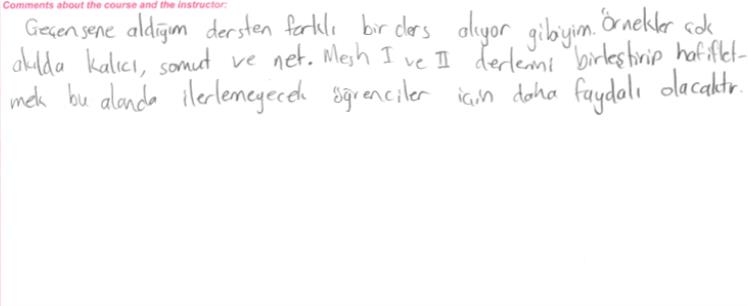 Comments about the course and the instructor:
Geçen sene aldığım dersten farklı bir ders alıyor gibiyim. Örnekler çok
akılda kalıcı, somut ve net. Mesh I ve II derlemi birleştirip hafiflet-
mek bu alanda ilerlemeyecek öğrenciler için daha faydalı olacaktır.